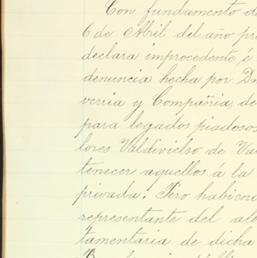 Con fundamento d
6 de Abril del año pr
declara improcedente é
denuncia hecha por D
verria y Compañia de
para legados piadosos
lores Valdivielso de Va
tenecer aquellos á la
privada. Pero habien
representante del al
tamentaria de dicha